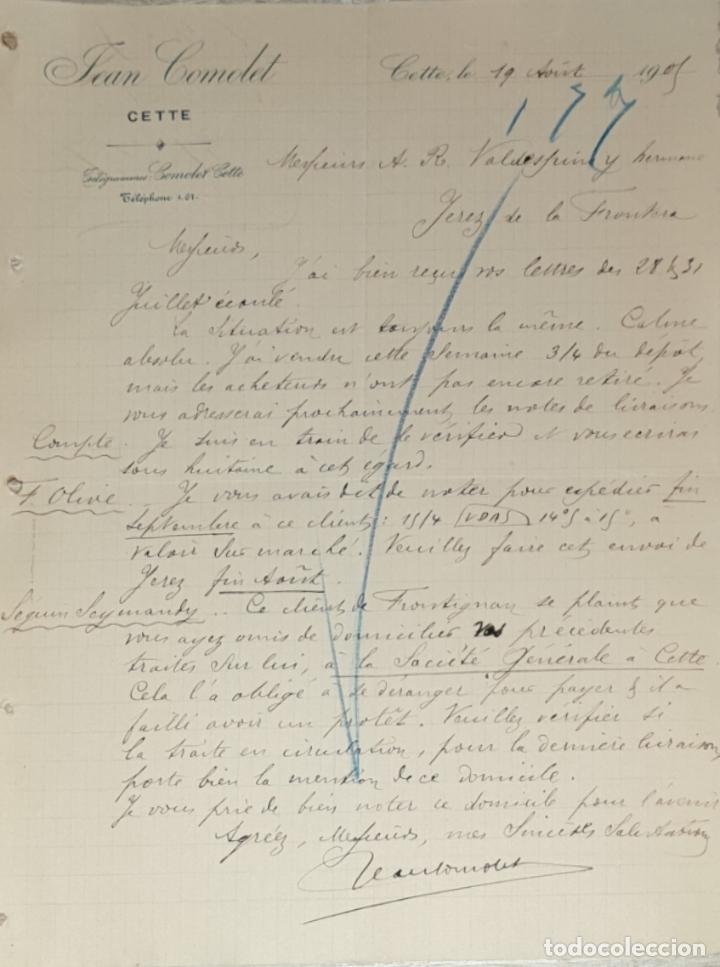 Jean Comolet
Cette, le 19 Août 1905
CETTE
Télégrammes: Comolet Cette
Téléphone 1.01
Messieurs A. R. Valdespino y hermano
Jerez de la Frontera
Messieurs,
J'ai bien reçu vos lettres des 28 & 31
Juillet écoulé.
La situation est toujours la même. Calme
absolu. J'ai vendu cette semaine 3/4 du dépôt
mais les acheteurs n'ont pas encore retiré. Je
vous adresserai prochainement les notes de livraisons.
Compte. Je suis en train de le vérifier et vous écrirai
sous huitaine à cet égard.
F. Olive .. Je vous avais dit de noter pour expédier fin
septembre à ce client: 15/4 14°5 à 15°, à
valoir sur marché. Veuillez faire cet envoi de
Jerez fin Août.
Séguin Seymandy .. Ce client de Frontignan se plaint que
vous ayez omis de domicilier vos précédentes
traites sur lui, à la Société Générale à Cette.
Cela l'a obligé à se déranger pour payer & il a
failli avoir un protêt. Veuillez vérifier si
la traite en circulation, pour la dernière livraison,
porte bien la mention de ce domicile.
Je vous prie de bien noter ce domicile pour l'avenir
Agréez, Messieurs, mes Sincères Salutations
Jean Comolet
todocoleccion